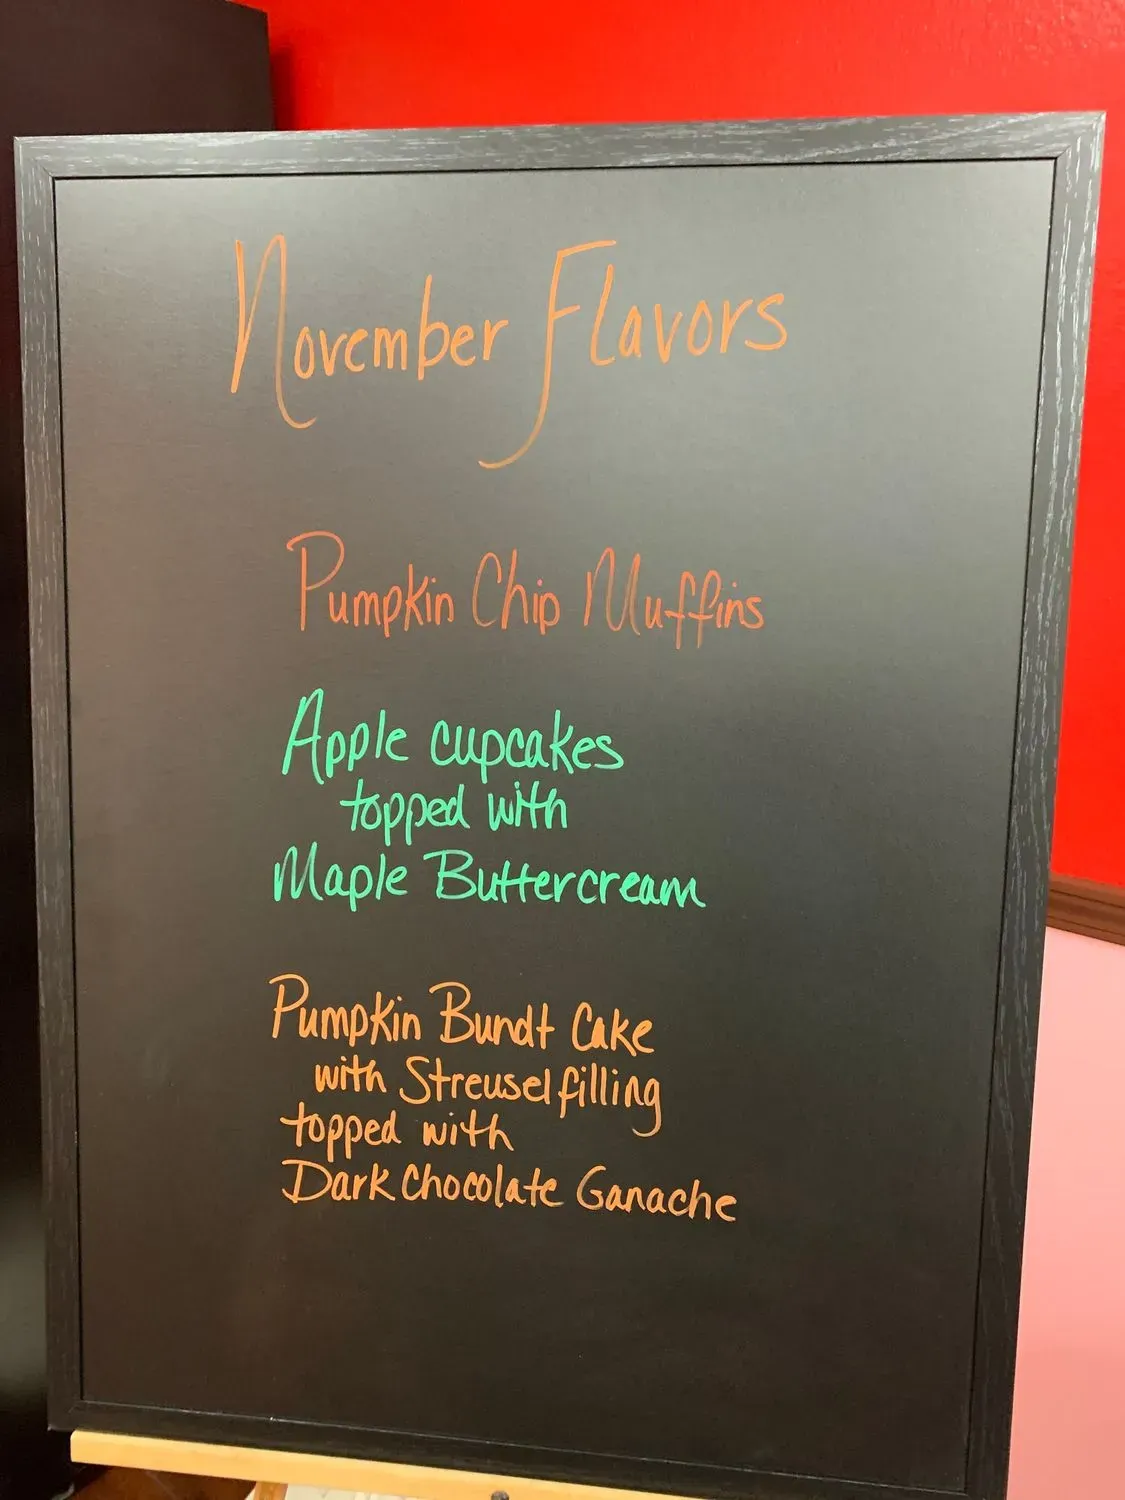 November Flavors
Pumpkin Chip Muffins
Apple cupcakes
topped with
Maple Buttercream
Pumpkin Bundt Cake
with Streusel filling
topped with
Dark Chocolate Ganache